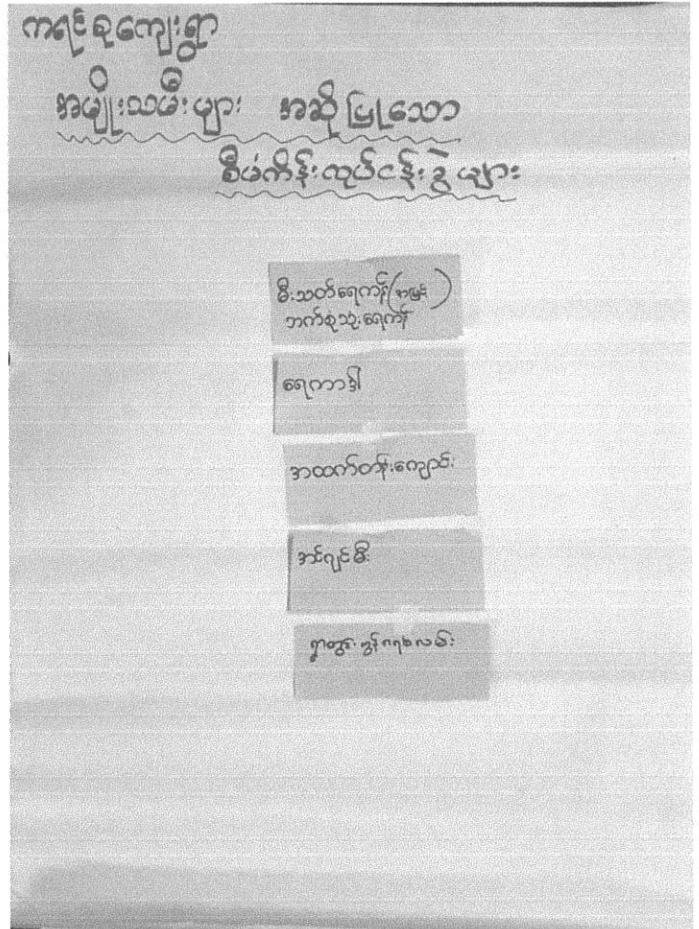 ကရင်စုကျေးရွာ
အမျိုးသမီးများ အဆိုပြုသော
စီမံကိန်းလုပ်ငန်းခွဲများ
မီးသတ်ရေကန်
ဘက်စုံသုံးရေကန်
ရေကာဒါ
အထက်တန်းကျောင်း
အင်ဂျင်မီး
ရွာတွင်းကွန်ကရစ်လမ်း